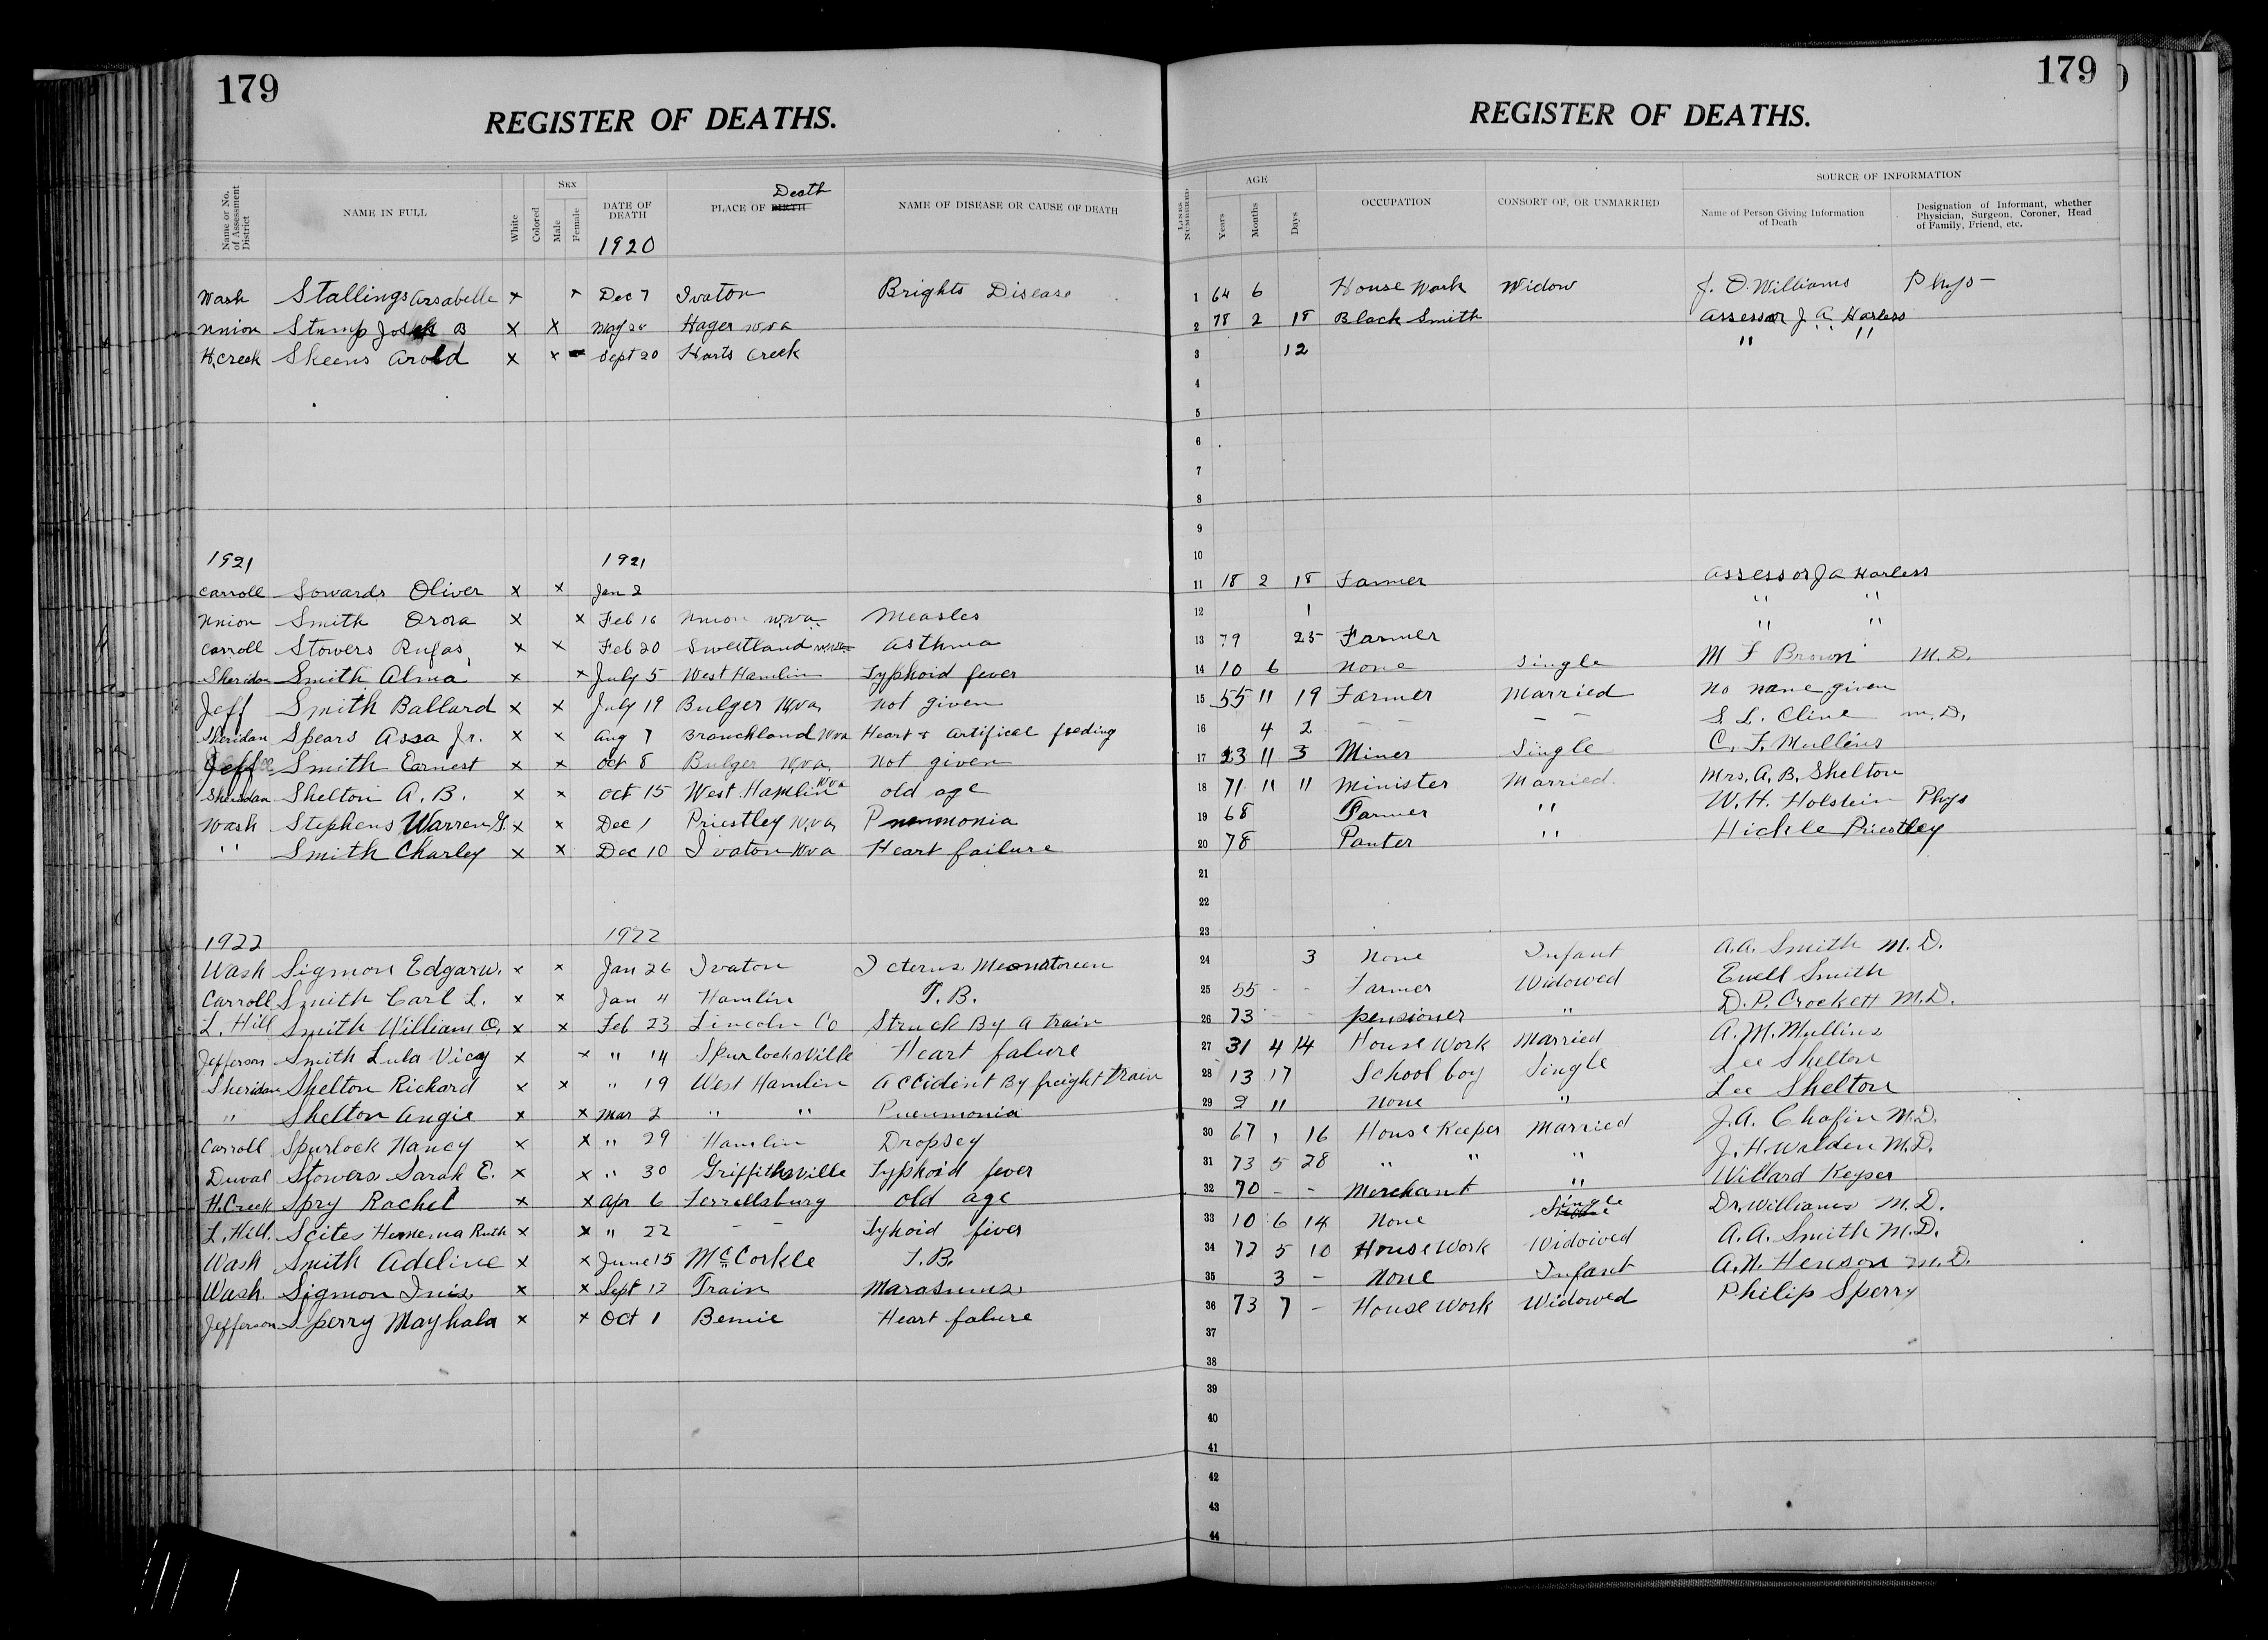 179
REGISTER OF DEATHS.
Name or No. of Assessment District
NAME IN FULL
White
Colored
SEX
Male
Female
DATE OF DEATH
1920
PLACE OF BIRTH Death
NAME OF DISEASE OR CAUSE OF DEATH
Wash Stallings Arsabelle x x Dec 7 Ivaton Brights Disease
Union Stump Joseph B x x May 28 Hager W.Va
H.Creek Skeens Arold x x Sept 20 Harts Creek
1921 1921
Carroll Sowards Oliver x x Jan 2
Union Smith Orora x x Feb 16 Union W.Va. Measles
Carroll Stowers Rufas x x Feb 20 Sweetland W.Va. Asthma
Sheridan Smith Alma x x July 5 West Hamlin Typhoid fever
Jeff Smith Ballard x x July 19 Bulger W.Va, not given
Sheridan Spears Assa Jr. x x Aug 7 Branchland W.Va Heart & Artifical feeding
Jeff Smith Earnest x x Oct 8 Bulger W.Va, not given
Sheridan Shelton A. B. x x Oct 15 West Hamlin W.Va old age
Wash Stephens Warren G. x x Dec 1 Priestley W.Va, Pneumonia
" Smith Charley x x Dec 10 Ivaton W.Va Heart failure
1922 1922
Wash Sigmon Edgar W. x x Jan 26 Ivaton Icterus
Carroll Smith Carl L. x x Jan 4 Hamlin T. B.
L. Hill Smith William O. x x Feb 23 Lincoln Co Struck By a train
Jefferson Smith Lula Vicy x x " 14 Spurlocksville Heart falure
Sheridan Shelton Richard x x " 19 West Hamlin Accident By freight train
" Shelton Angie x x Mar 2 " " Pneumonia
Carroll Spurlock Nancy x x " 29 Hamlin Dropsey
Duval Stowers Sarah E. x x " 30 Griffithsville Typhoid fever
H.Creek Spry Rachel x x Apr 6 Ferrellsburg old age
L. Hill. Scites Ruth x x " 22 - - Tyhoid fiver
Wash Smith Adeline x x June 15 McCorkle T. B.
Wash. Sigmon Inis x x Sept 12 Train Marasmus
Jefferson Sperry Mayhala x x Oct 1 Bernie Heart falure
179
REGISTER OF DEATHS.
LINES NUMBERED
AGE
Years
Months
Days
OCCUPATION
CONSORT OF, OR UNMARRIED
SOURCE OF INFORMATION
Name of Person Giving Information of Death
Designation of Informant, whether Physician, Surgeon, Coroner, Head of Family, Friend, etc.
1 64 6 House Work Widow J. O. Williams Phys-
2 78 2 18 Black Smith Assessor J A Harless
3 12 " "
4
5
6
7
8
9
10
11 18 2 18 Farmer Assessor J A Harless
12 1 " "
13 79 25 Farmer " "
14 10 6 None Single M F Brown M. D.
15 55 11 19 Farmer Married no name given
16 4 2 - - - - S L. Cline M. D,
17 23 11 3 Miner Single C. F. Mullins
18 71 11 11 Minister Married. Mrs. A. B. Shelton
19 68 Farmer " W. H. Holstein Phys
20 78 Panter " Hickle Priestley
21
22
23
24 3 None Infant A. A. Smith M. D.
25 55 - - Farmer Widowed Euell Smith
26 73 - - pensioner " D. P. Crockett M. D.
27 31 4 14 House Work Married A. M. Mullins
28 13 17 School boy Single Lee Shelton
29 2 11 None " Lee Shelton
30 67 1 16 House Keeper Married J. A. Chafin M.D.
31 73 5 28 " " " J. H. Walden M.D.
32 70 - - Merchant " Willard Keyser
33 10 6 14 None Single Dr. Williams M. D.
34 72 5 10 House Work Widowed A. A. Smith M. D.
35 3 - None Infant A. N. Henson M. D.
36 73 7 - House Work Widowed Philip Sperry
37
38
39
40
41
42
43
44